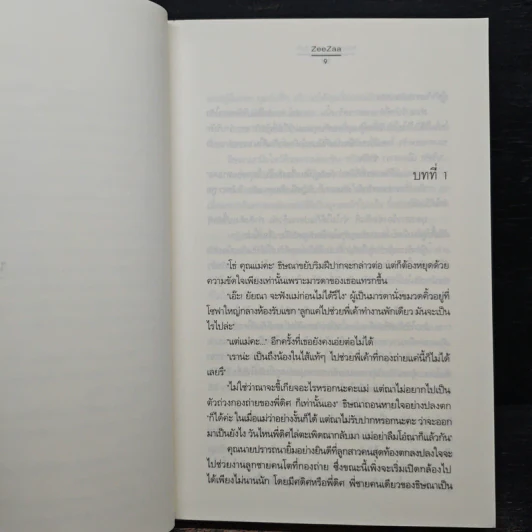 ZeeZaa
9
บทที่ 1
"โธ่ คุณแม่ค่ะ" ธิษณาขยับริมฝีปากจะกล่าวต่อ แต่ก็ต้องหยุดด้วย
ความขัดใจเพียงเท่านั้นเพราะมารดาของเธอแทรกขึ้น
"เอ๊ะ! ยัยณา จะฟังแม่ก่อนไม่ได้รึไง" ผู้เป็นมารดานั่งขมวดคิ้วอยู่ที่
โซฟาใหญ่กลางห้องรับแขก "ลูกแค่ไปช่วยพี่เค้าทำงานพักเดียว มันจะเป็น
ไรไปล่ะ"
"แต่แม่คะ..." อีกครั้งที่เธอยังคงเอ่ยต่อไม่ได้
"เราน่ะ เป็นถึงน้องในไส้แท้ๆ ไปช่วยพี่เค้าที่กองถ่ายแค่นี้ก็ไม่ได้
เลยรึ"
"ไม่ใช่ว่าณาจะขี้เกียจอะไรหรอกนะคะแม่ แต่ณาไม่อยากไปเป็น
ตัวถ่วงกองถ่ายของพี่ดิศ ก็เท่านั้นเอง" ธิษณาถอนหายใจอย่างปลงตก
"ก็ได้ค่ะ ในเมื่อแม่ว่าอย่างงั้นก็ได้ แต่ณาไม่รับปากหรอกนะคะ ว่าจะออก
มาเป็นยังไง วันไหนพี่ดิศไล่ตะเพิดณากลับมา แม่อย่าลืมโอ๋ณาก็แล้วกัน"
คุณนายปรารถนายิ้มอย่างยินดีที่ลูกสาวคนสุดท้องตกลงปลงใจจะ
ไปช่วยงานลูกชายคนโตที่กองถ่าย ซึ่งขณะนี้เพิ่งจะเริ่มเปิดกล้องไป
ได้เพียงไม่นานนัก โดยมีศดิศหรือพี่ดิศ พี่ชายคนเดียวของธิษณาเป็น